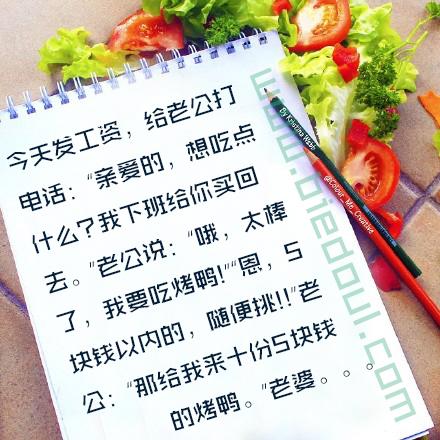 今天发工资，给老公打
电话：“亲爱的，想吃点
什么？我下班给你买回
去。”老公说：“哦，太棒
了，我要吃烤鸭！”“恩，5
块钱以内的，随便挑！！”老
公：“那给我来十份5块钱
的烤鸭。”老婆。。。
By Kristina Webb
@Colour_Me_Creative